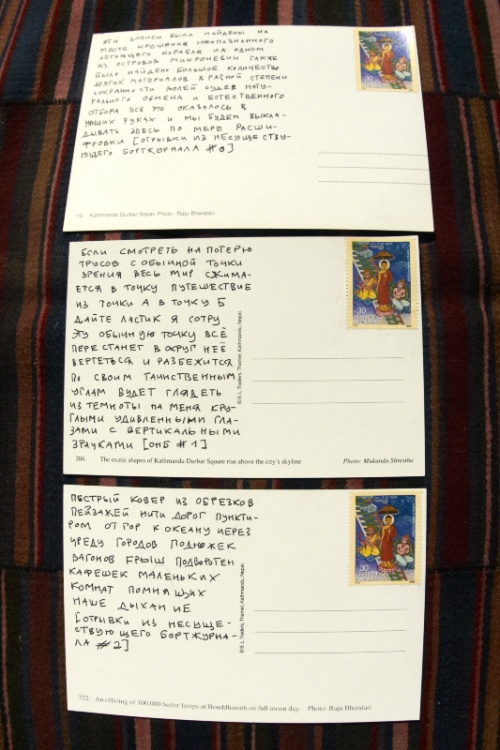 ЭТИ ЗАПИСИ БЫЛИ НАЙДЕНЫ НА
МЕСТЕ КРУШЕНИЯ НЕОПОЗНАННОГО
ЛЕТАЮЩЕГО КОРАБЛЯ НА ОДНОМ
ИЗ ОСТРОВОВ МИКРОНЕЗИИ ТАКЖЕ
БЫЛО НАЙДЕНО БОЛЬШОЕ КОЛИЧЕСТВО
ДРУГИХ МАТЕРИАЛОВ В РАЗНОЙ СТЕПЕНИ
СОХРАННОСТИ ВОЛЕЙ СУДЕБ НАТУ-
РАЛЬНОГО ОБМЕНА И ЕСТЕСТВЕННОГО
ОТБОРА ВСЁ ЭТО ОКАЗАЛОСЬ В
НАШИХ РУКАХ И МЫ БУДЕМ ВЫКЛА-
ДЫВАТЬ ЗДЕСЬ ПО МЕРЕ РАСШИ-
ФРОВКИ [ОТРЫВКИ ИЗ НЕСУЩЕСТВУ-
ЮЩЕГО БОРТЖУРНАЛА #0]
30
Kathmandu Durbar Squar Photo : Raju Bhandari
ЕСЛИ СМОТРЕТЬ НА ПОТЕРЮ
ТРУСОВ С ОБЫЧНОЙ ТОЧКИ
ЗРЕНИЯ ВЕСЬ МИР СЖИМА-
ЕТСЯ В ТОЧКУ ПУТЕШЕСТВИЕ
ИЗ ТОЧКИ А В ТОЧКУ Б
ДАЙТЕ ЛАСТИК Я СОТРУ
ЭТУ ОБЫЧНУЮ ТОЧКУ ВСЁ
ПЕРЕСТАНЕТ ВОКРУГ НЕЁ
ВЕРТЕТЬСЯ И РАЗБЕЖИТСЯ
ПО СВОИМ ТАИНСТВЕННЫМ
УГЛАМ БУДЕТ ГЛЯДЕТЬ
ИЗ ТЕМНОТЫ НА МЕНЯ КРУ-
ГЛЫМИ УДИВЛЕННЫМИ ГЛА-
ЗАМИ С ВЕРТИКАЛЬНЫМИ
ЗРАЧКАМИ [ОНБ #1]
30
© B. L. Traders, Thamel, Kathmandu, Nepal.
204. The exotic shapes of Kathmandu Durbar Square rise above the city's skyline
Photo: Mukunda Shrestha
ПЕСТРЫЙ КОВЕР ИЗ ОБРЕЗКОВ
ПЕЙЗАЖЕЙ НИТИ ДОРОГ ПУНКТИ-
РОМ ОТ ГОР К ОКЕАНУ ЧЕРЕЗ
ЧЕРЕДУ ГОРОДОВ ПОДНОЖЕК
ВАГОНОВ КРЫШ ПОДВОРОТЕН
КАФЕШЕК МАЛЕНЬКИХ
КОМНАТ ПОМНЯЩИХ
НАШЕ ДЫХАНИЕ
[ОТРЫВКИ ИЗ НЕСУЩЕ-
СТВУЮЩЕГО БОРТЖУРНА-
ЛА #2]
30
© B. L. Traders, Thamel, Kathmandu, Nepal.
322. An offering of 100,000 butter lamps at Bouddhanath on full moon day. Photo: Raju Bhandari